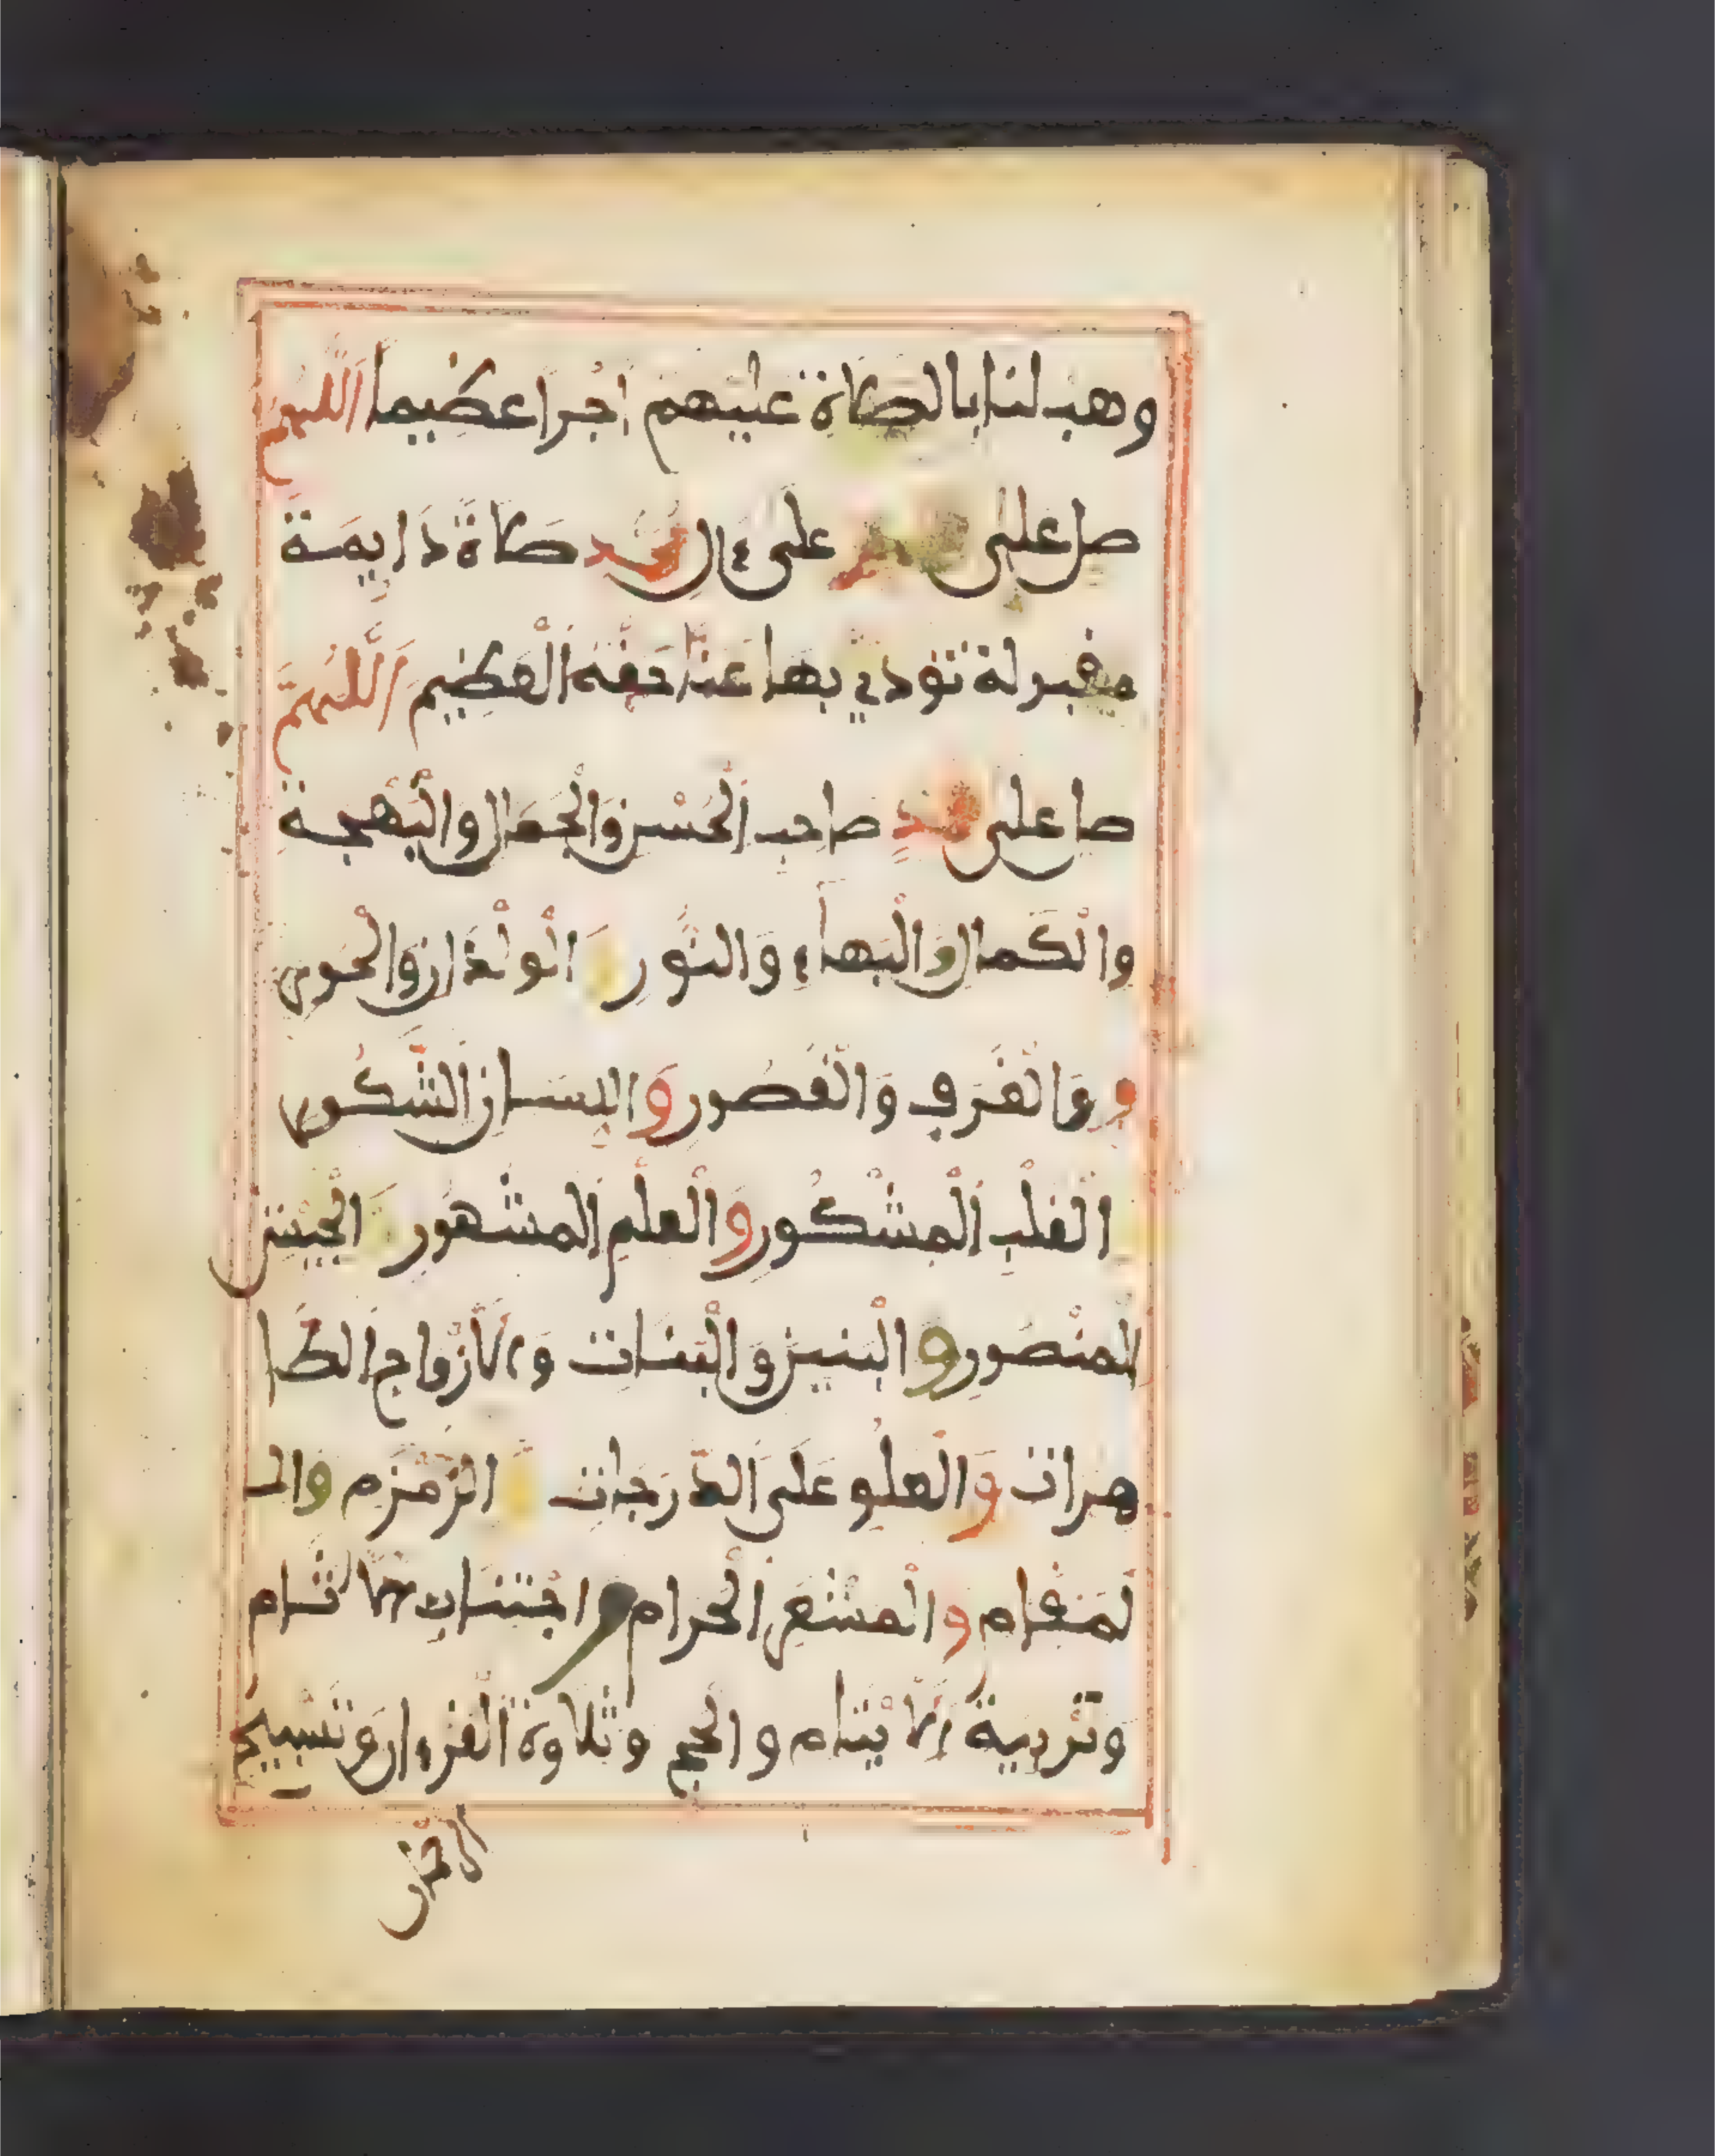 وهب لنا بالصلاة عليهم اجرا عظيما اللهم
صل على محمد على ءال محمد صلاة دايمة
مقبولة تودي بها عنا حقه العظيم اللهم
صل على محمد صاحب الحسن والجمال والبهجة
والكمال والبهاء والنور و الولدان والحور
و والغرف والقصور واللسان الشكور
القلب المشكور والعلم المشهور الجيش
المنصور والبنين والبنات والازواج الطا
هرات والعلو على الدرجات و الزمزم والـ
لمقام والمشعر الحرام و اجتناب الاثام
وتربية الايتام والحج وتلاوة القرءان وتسبيح
الرحمن